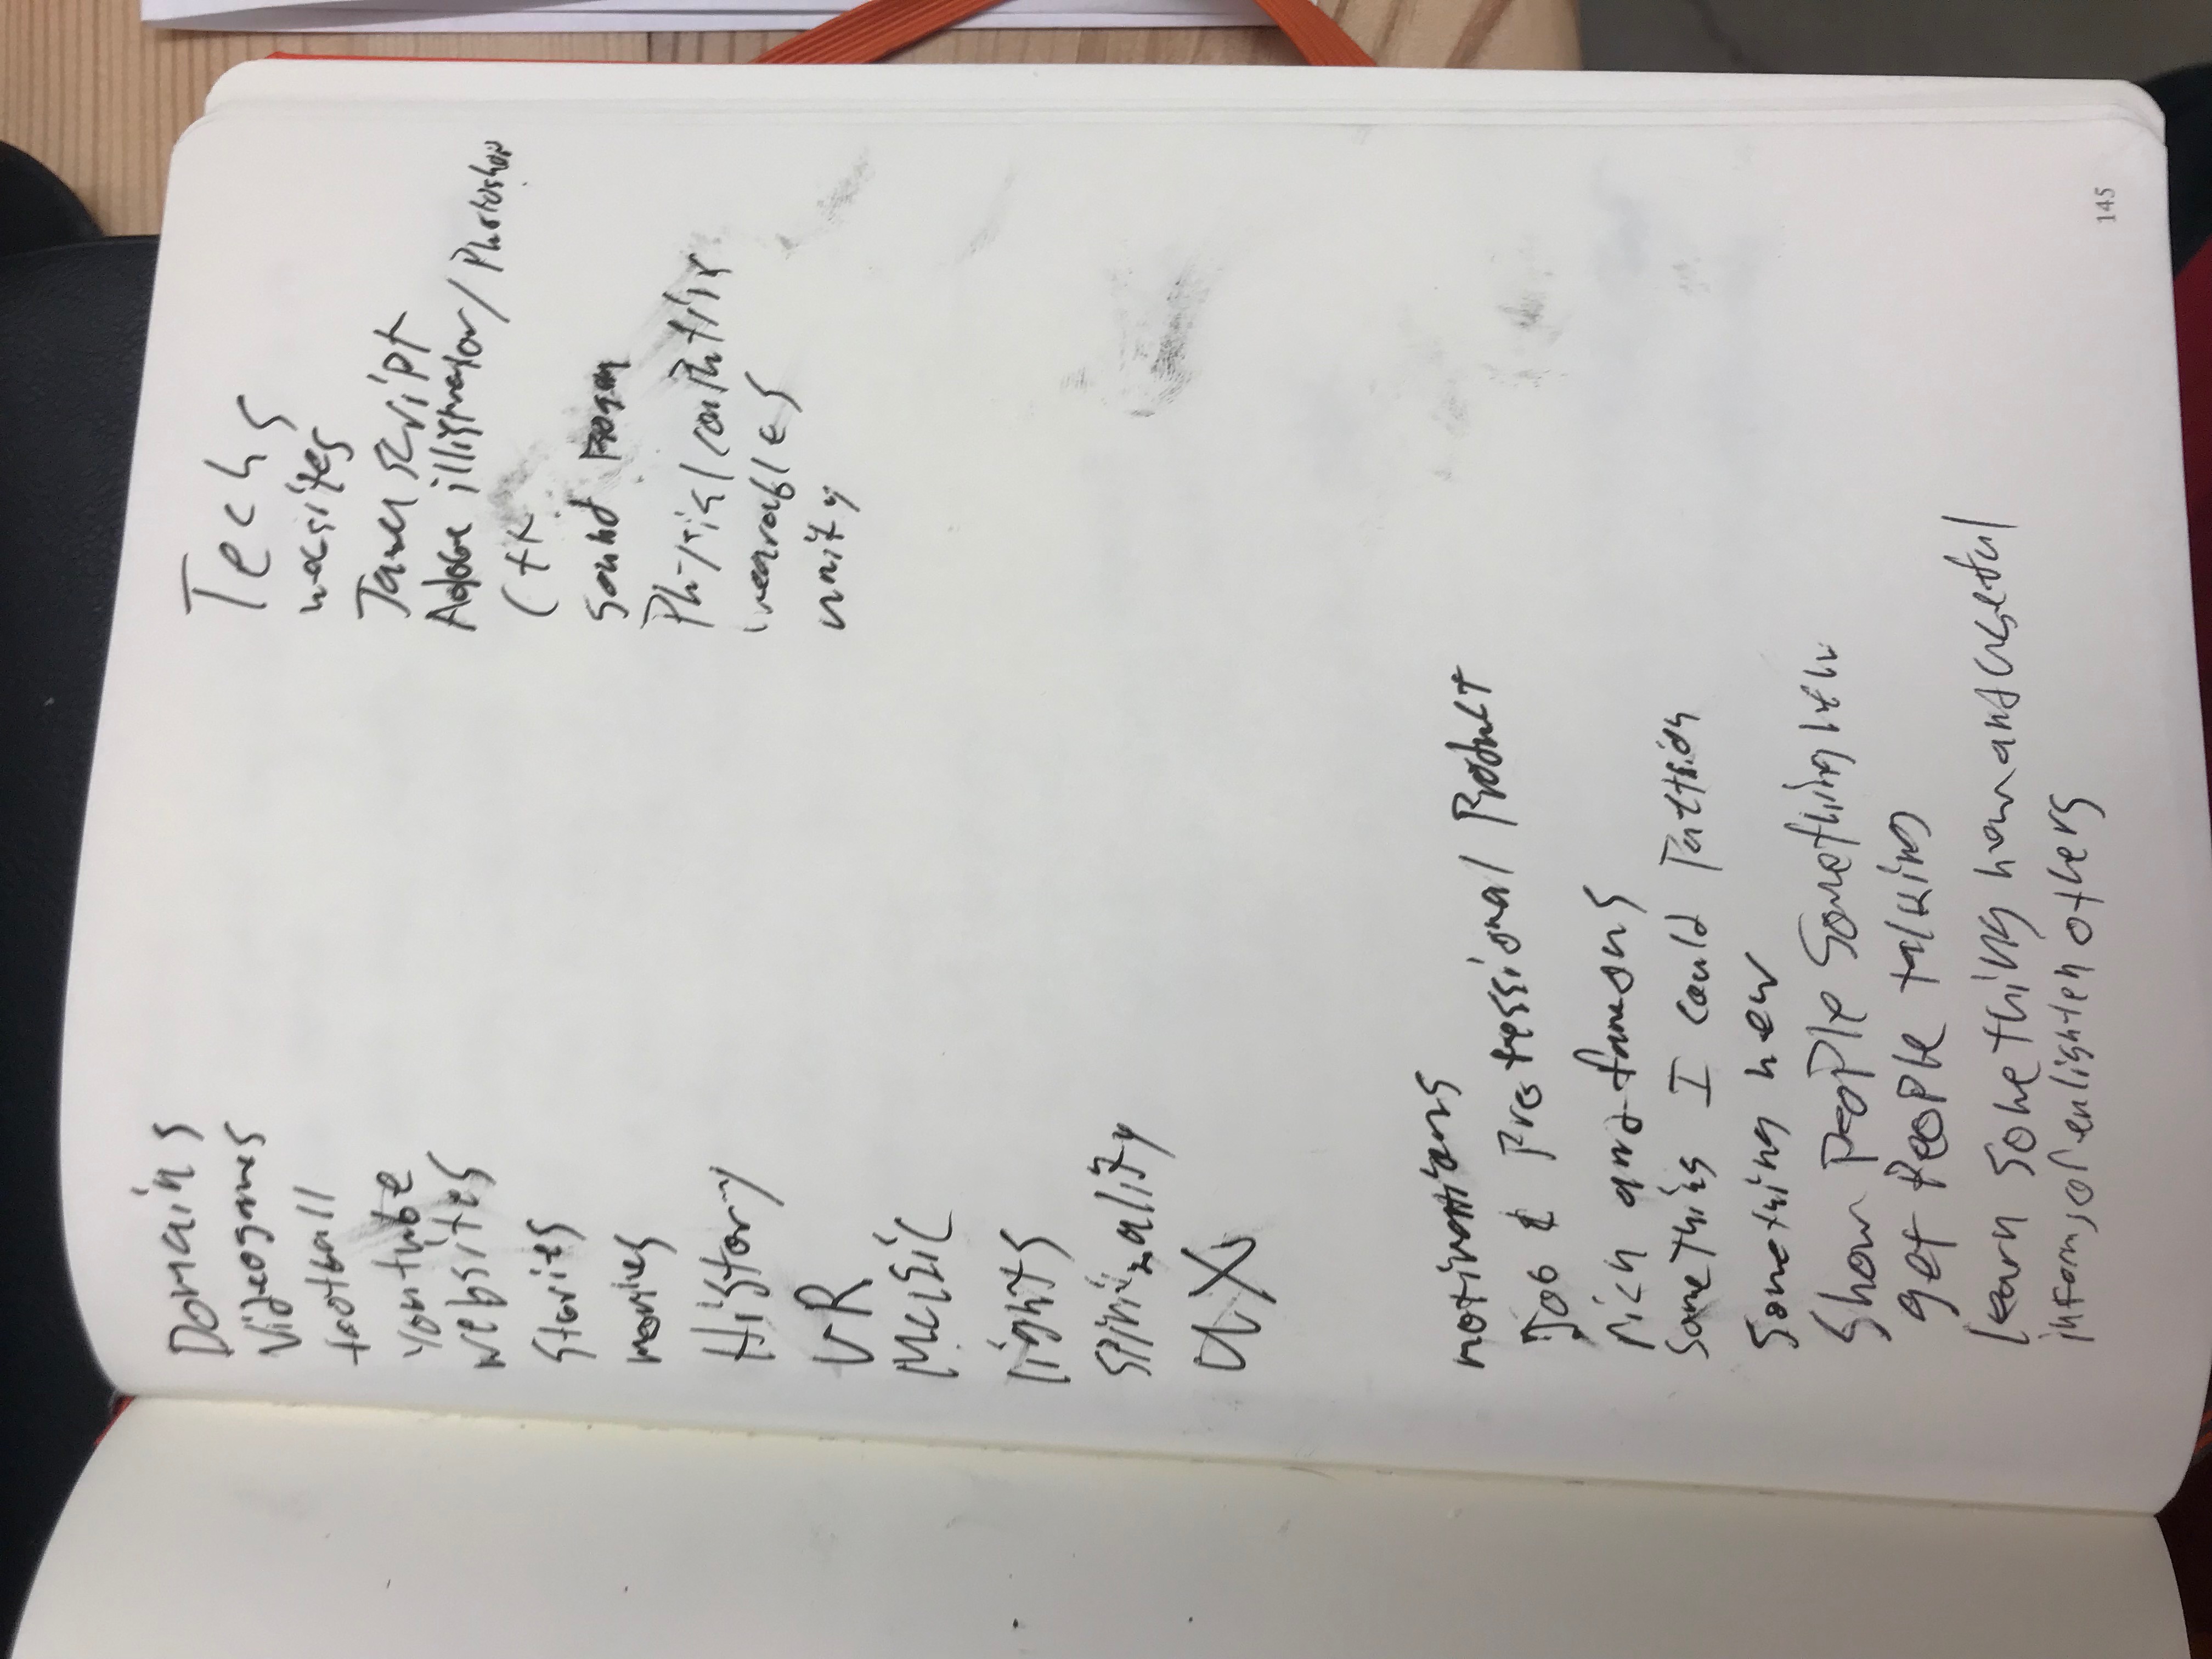 Domains
Videogames
football
youtube
websites
Stories
movies
History
VR
Music
lights
Spirituality
UX
Techs
websites
Java script
Adobe illistrator / Photoshop
C++
Sound
Physical
wearables
unity
motivations
Job & Professional Product
rich and famous
Something I could
Something new
Show People Something new
get People talking
learn something new and useful
inform, or enlighten others
145